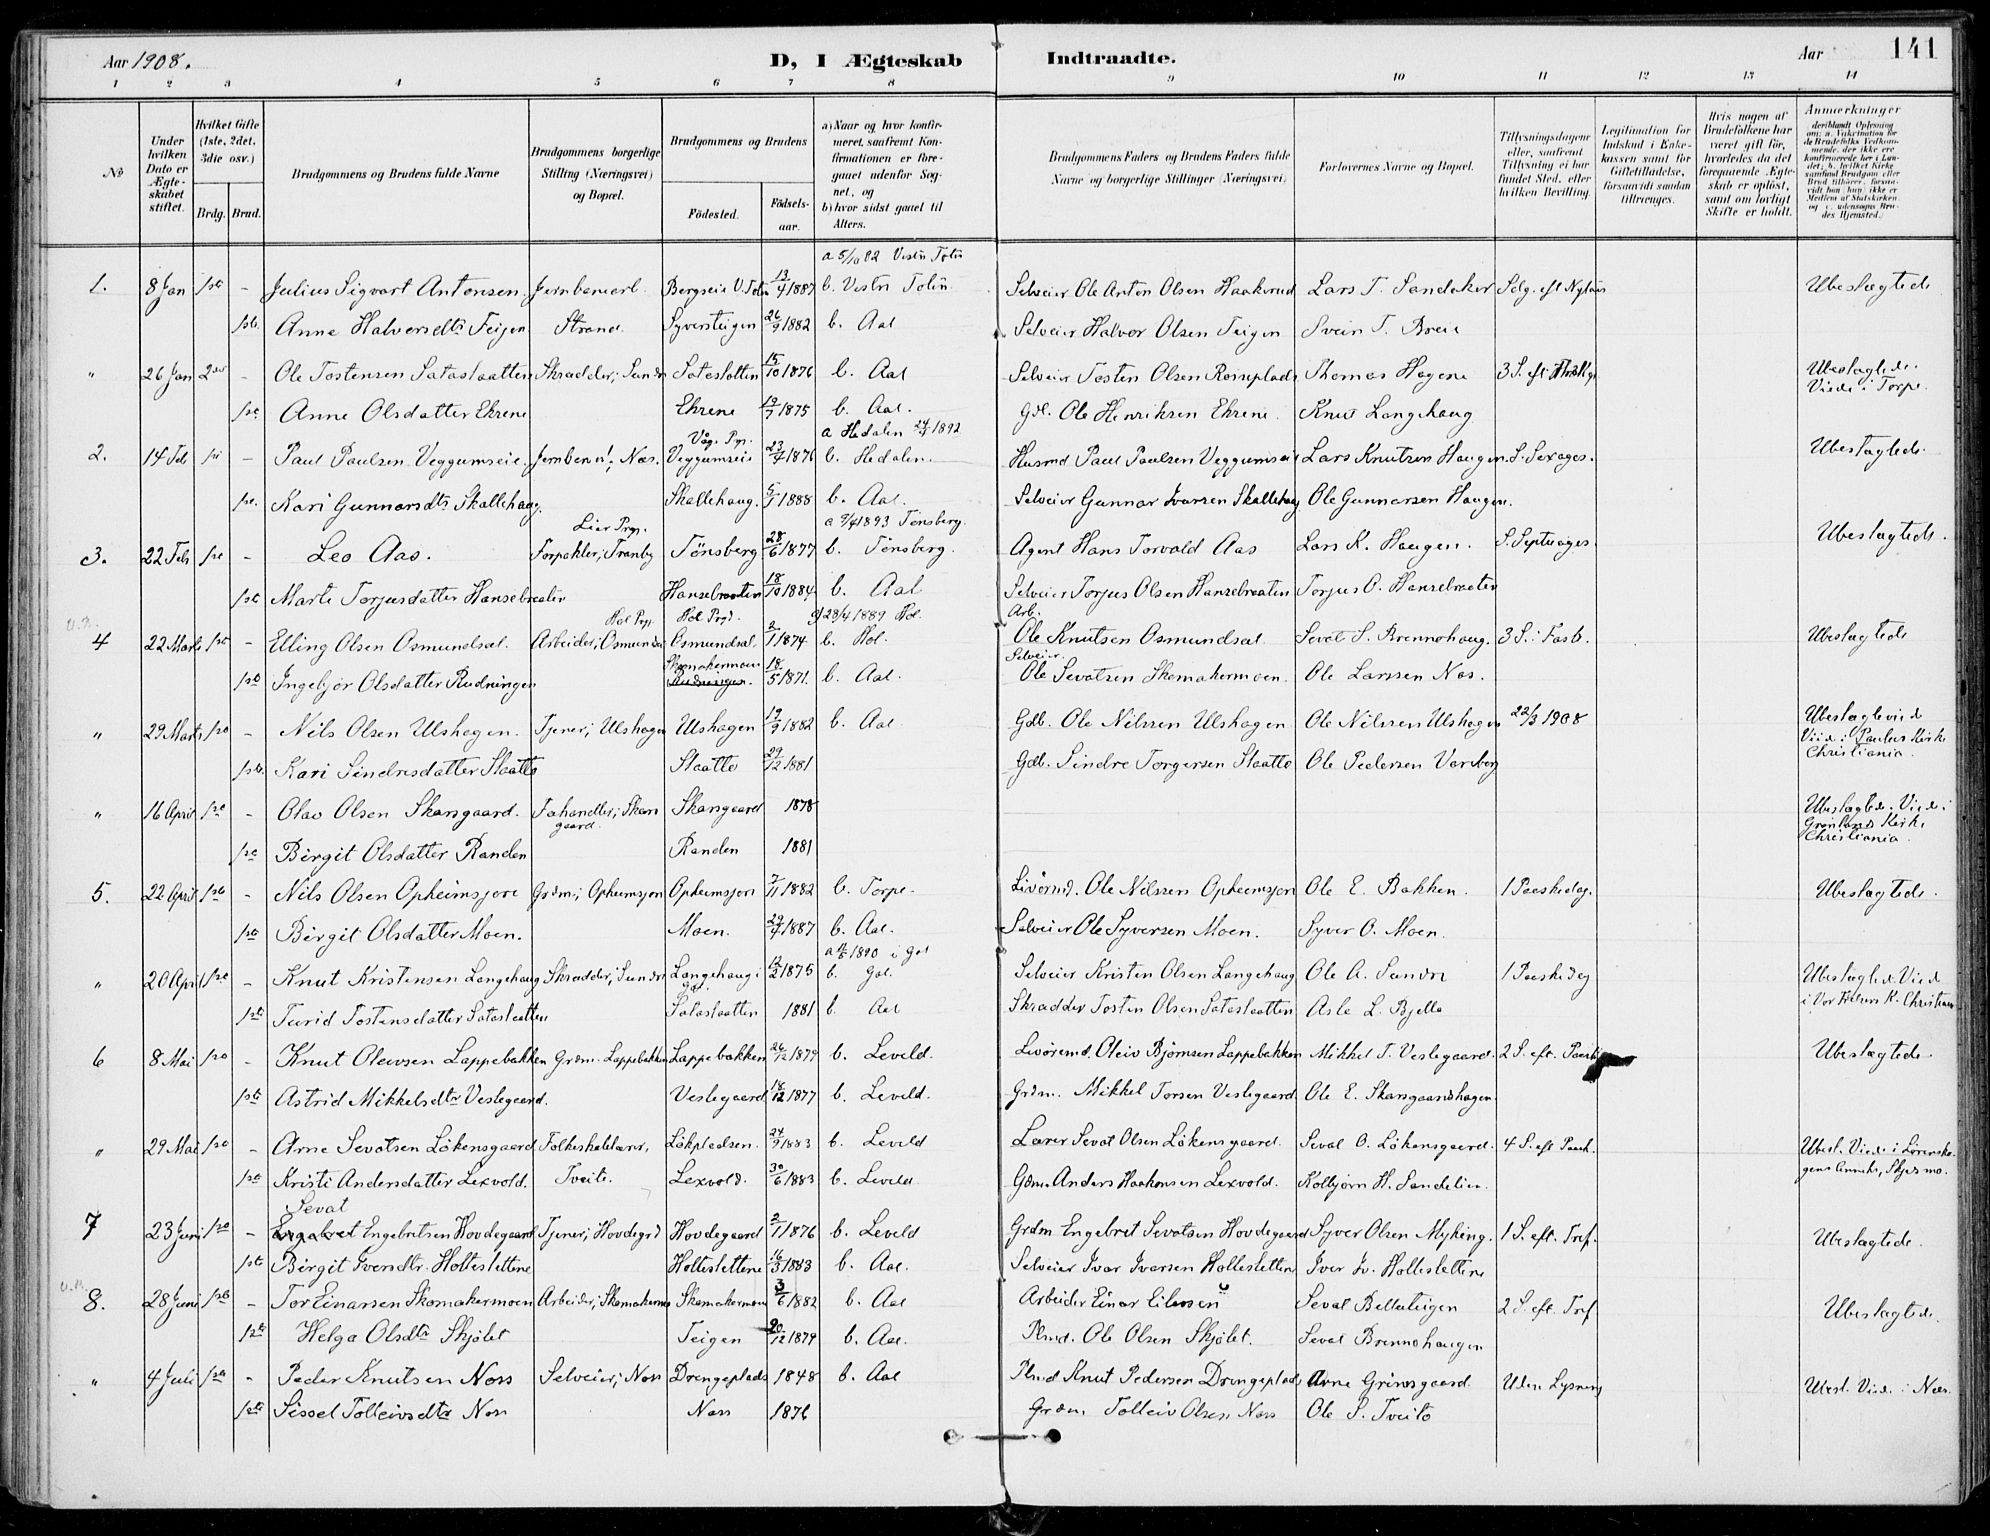 Aar 1908.
D, I Ægteskab Indtraadte.
Aar
141
1 2 3 4 5 6 7 8 9 10 11 12 13 14
No
Under hvilken Dato er Ægteskabet stiftet.
Hvilket Gifte (1ste, 2det, 3die osv.)
Brdg. Brud.
Brudgommens og Brudens fulde Navne
Brudgommens borgerlige Stilling (Næringsvei) og Bopæl.
Brudgommens og Brudens
Födested.
Födselsaar.
a) Naar og hvor konfirmeret, saafremt Konfirmationen er foregaaet udenfor Sognet, og
b) hvor sidst gaaet til Alters.
Brudgommens Faders og Brudens Faders fulde Navne og borgerlige Stillinger (Næringsvei)
Forlovernes Navne og Bopæl.
Tillysningsdagene eller, saafremt Tillysning ei har fundet Sted, efter hvilken Bevilling.
Legitimation for Indskud i Enkekassen samt for Giftetilladelse, forsaavidt saadan tiltrænges.
Hvis nogen af Brudefolkene har været gift för, hvorledes da det foregaaende Ægteskab er oplöst, samt om lovligt Skifte er holdt.
Anmerkninger
deriblandt Oplysning om: a. Vakcination for de Brudefolks Vedkommende, der ikke ere konfirmerede her i Landet; b. hvilket Kirkesamfund Brudgom eller Brud tilhörer, forsaavidt han (hun) ikke er Medlem af Statskirken, og c. udensogns Brudes Hjemsted.
a 5/10 82 Vestre Toten
1. 8 Jan 1ste - Julius Sigvart Antonsen. Jernbanearb. Bergseie V. Toten 13/4 1887 b. Vestre Toten. Selveier Ole Anton Olsen Haakerud Lars T. Sandaker Sdg. eft Nytaar Ubeslægtede
1ste. Anne Halvorsdtr Teigen Strand Syversteigen 26/9 1882 b. Aal Selveier Halvor Olsen Teigen Svein T. Breie
" 26 Jan 2det - Ole Tostensen Sataslaatten Skrædder, Sundre Sataslotten 15/10 1876 b. Aal Selveier Tosten Olsen Thomas Hagene 3 S. eft Ubeslægtede. Viede i Torpe.
1ste Anne Olsdatter Ehrene Ehrene 19/7 1875 b. Aal. Gdb. Ole Henriksen Ehrene. Knut Langehaug
Våge Pgr. a Hedalen 24/4 1892
2. 14 Feb 1ste - Paul Paulsen Veggumseie. Jernbanea; Næs. Veggumseie 23/4 1876 b. Hedalen. Husmd Paul Paulsen Veggumseie Lars Knutsen Haugen. S. Sexages. Ubeslægtede.
1ste. Kari Gunnarsdtr Skallehaug. Skallehaug. 5/1 1888 b. Aal. Selveier Gunnar Ivarsen Skallehaug Ole Gunnarsen Haugen.
Lier Prgj. a 9/4 1893 Tønsberg.
3. 22 Feb 1ste - Leo Aas. Forpakter, Tranby Tønsberg 28/6 1877 b. Tønsberg. Agent Hans Torvald Aas Lars K. Haugen. S. Septuages. Ubeslægtede.
1ste Marte Torjusdatter Hansebraaten Hansebraaten 18/10 1884 b. Aal Selveier Torjus Olsen Hansebraaten Torjus O. Hansebraaten
Hol Prgj. Hol Prgj. a) 28/4 1889 Hol. Arb.
4 22 Mart 1ste - Elling Olsen Osmundsal. Arbeider, Osmundsal Osmundsal. 2/1 1874 b. Hol. Ole Knutsen Osmundsal Sevat S. Brennohaug. 3 S. i Fasb. Ubeslægtede
1ste Ingebjør Olsdatter Rudningen Skomakermoen Rudningen. 18/5 1871. b. Aal. Selveier. Ole Sevatsen Skomakermoen. Ole Larssen Næs.
" 29 Mart 1ste - Nils Olsen Ulshagen. Tjener, Ulshagen Ulshagen 19/9 1882 b. Aal Gdb. Ole Nilssen Ulshagen Ole Nilssen Ulshagen 22/3 1908 Ubeslægtede Viede i Paulus Kirke Christiania.
1ste. Kari Sindresdatter Slaatto Slaatto 29/12 1881 Gdb. Sindre Torgersen Slaatto Ole Pedersen Varberg
" 16 April 1ste - Olav Olsen Skarsgaard. Fehandler, Skarsgaard. Skarsgaard 1878 Ubeslægtede. Viede i Grønlands Kirke, Christiania.
1ste Birgit Olsdatter Randen Randen 1881
5. 22 April 1ste - Nils Olsen Opheimsjore Grdm; Opheimsjore Opheimsjore 7/11 1882 b. Torpe. Livøremd. Ole Nilssen Opheimsjore Ole E. Bakken. 1 Paaskedag. Ubeslægtede.
1ste Birgit Olsdatter Moen. Moen. 29/4 1887 b. Aal. Selveier Ole Syversen Moen. Syver O. Moen
a 1890 i Gol
" 20 April 1ste - Knut Kristensen Langehaug Skrædder, Sundre Langehaug i Gol 12/2 1875 b. Gol. Selveier Kristen Olsen Langehaug Ole A. Sundre 1 Paaskedag Ubeslægtede Viede i Vor Frelsers K. Christiania
1ste Turid Tostensdatter Sataslaatten Sataslaatten 1881 b. Aal Skrædder Tosten Olsen Sataslaatten Asle L. Bjella
6 8 Mai 1ste - Knut Oleivsen Lappebakken Grdm. Lappebakken Lappebakken 26/12 1879 b. Leveld. Livøremd. Oleiv Bjørnsen Lappebakken Mikkel T. Veslegaard. 2 S. eft. Paaske Ubeslægtede.
1ste Astrid Mikkelsdtr Veslegaard. Veslegaard 18/12 1877 b. Leveld. Grdm. Mikkel Torsen Veslegaard Ole E. Skarsgaardshagen.
" 29 Mai 1ste - Arne Sevatsen Løkensgaard Folkeskolelærer, Løkpladsen. 24/9 1883 b. Leveld Lærer Sevat Olsen Løkensgaard. Sevat O. Løkensgaard. 4 S. eft Paask. Ubesl. Viede i Lørenskogens Anneks, Skjesmo.
1ste Kristi Andersdatter Lexvold. Tveito. Lexvold. 30/6 1883 b. Leveld Gdm. Anders Haakonsen Lexvold. Kolbjørn H. Sandelien.
Sevat
7 23 Juni 1ste - Engebret Engebretsen Hovdegaard Tjener, Hovdegrd Hovdegaard 2/1 1876 b. Leveld Grdm Engebret Sevatsen Hovdegaard Syver Olsen Myking. 1 S. eft. Tref. Ubeslægtede.
1ste Birgit Iversdtr. Holteslettene Holteslettene 16/3 1883 b. Aal. Selveier Ivar Ivarsen Holteslettene Iver Iv. Holteslettene
8. 28 Juni 1ste - Tor Einarsen Skomakermoen Arbeider, Skomakermoen Skomakermoen 3/6 1882 b. Aal Arbeider Einar Eilevsen Sevat Bellateigen 2 S. eft. Tref Ubeslægtede.
1ste Helga Olsdtr Skjølet Teigen 20/12 1879 b. Aal. Plmd. Ole Olsen Skjølet. Sevat Brennohaugen
" 4 Juli 1ste - Peder Knutsen Noss Selveier, Noss Drengeplads 1848 b. Aal Plmd Knut Pedersen Drengeplads Arne Grimsgaard. Uden Lysning Ubesl. Viede i Næs.
1ste Sissel Tolleivsdtr Noss Noss 1876 Grdm. Tolleiv Olsen Noss Ole S. Tveito